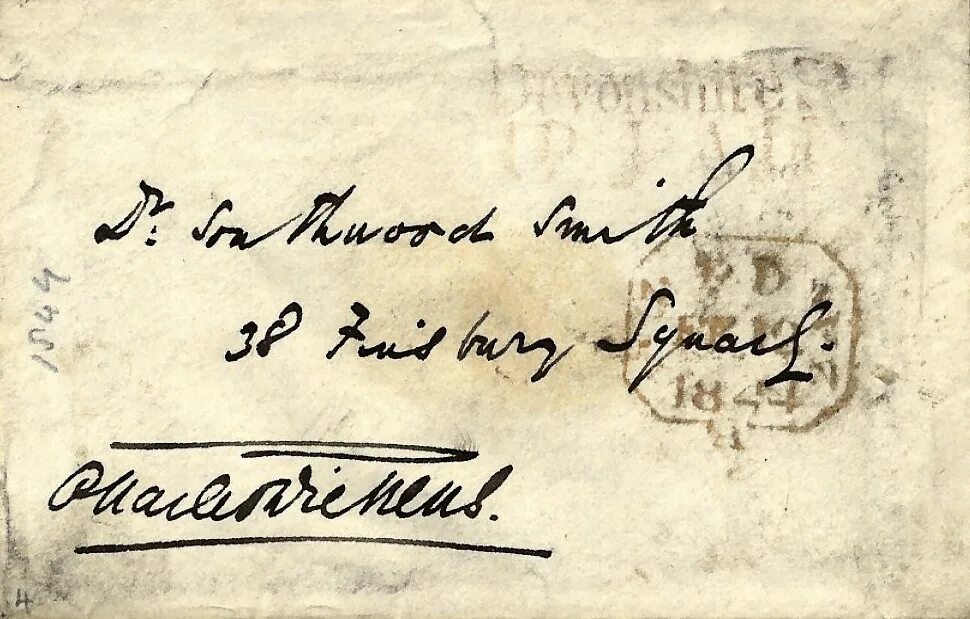 Devonshire St
1P PAID
Dr. Southwood Smith
38 Finsbury Square.
Charles Dickens.
PD
1844
1544
4